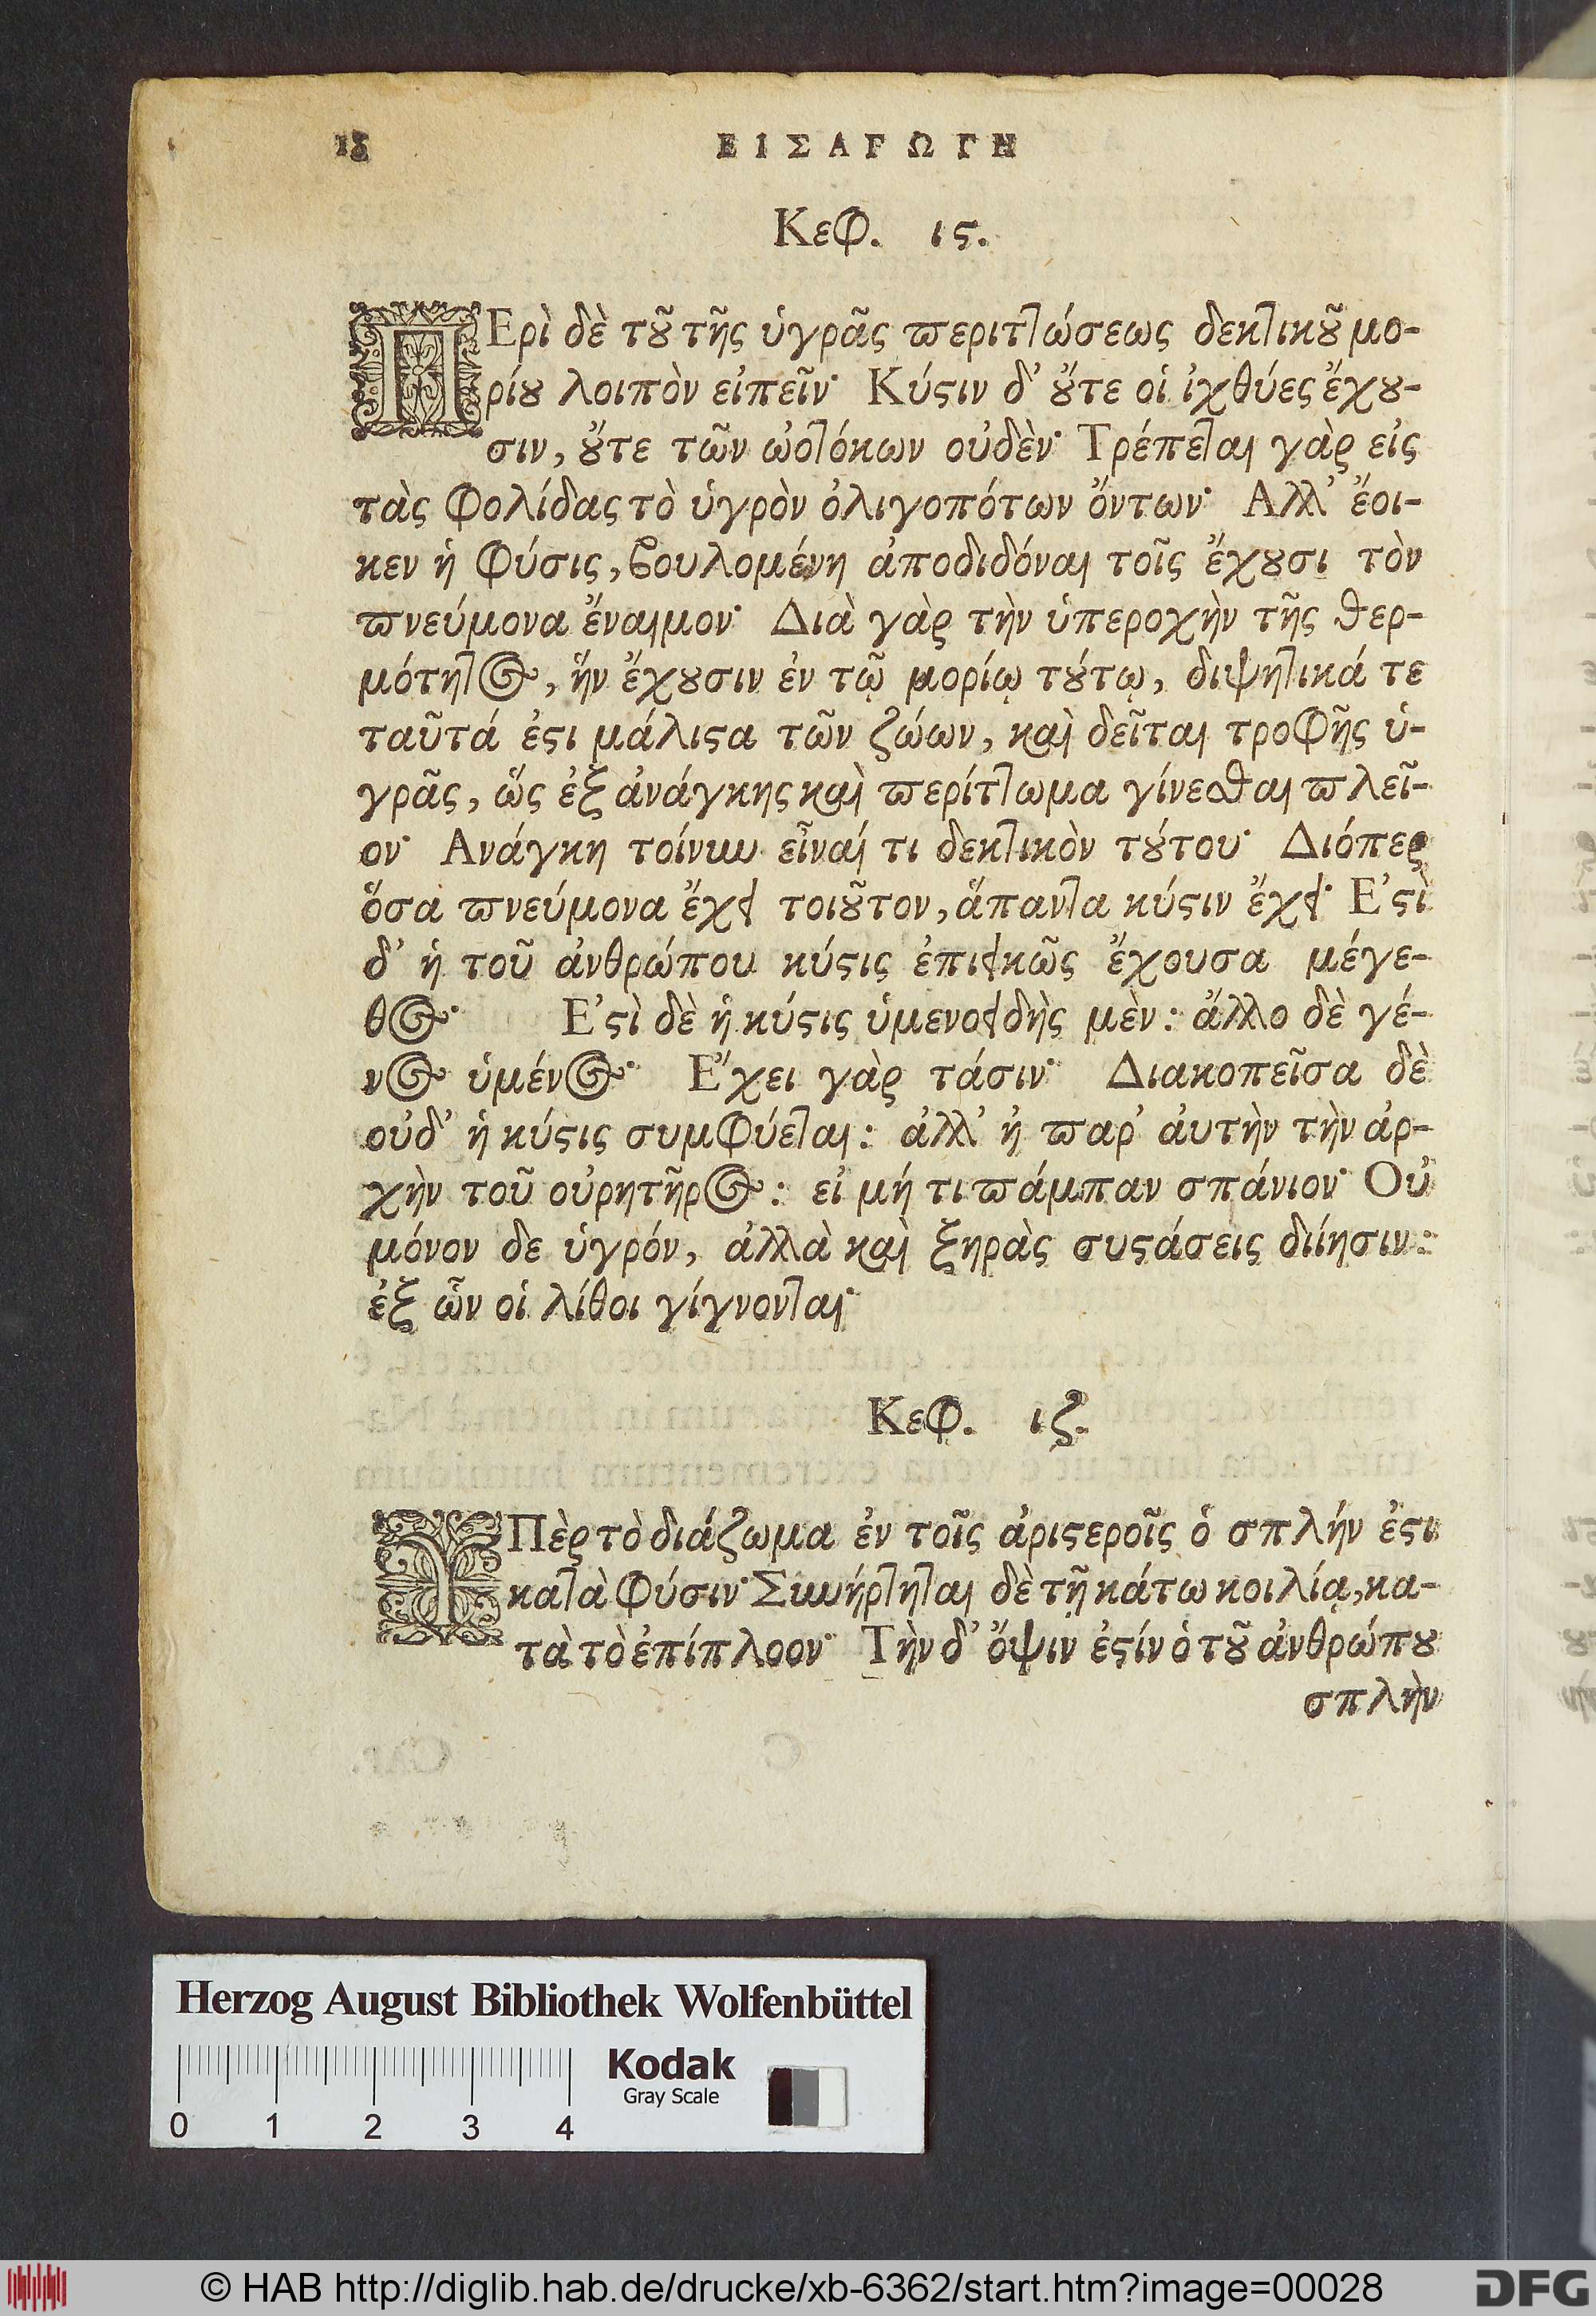 18 ΕΙΣΑΓΩΓΗ
Κεφ. ις.
ΠΕρὶ δὲ τȣ͂ τῆς ὑγρᾶς ϖεριτ]ώσεως δεκ]ικȣ͂ μο-
ρίȣ λοιπὸν εἰπεῖν· Κύσιν δ’ ȣ̓́τε οἱ ἰχθύες ἔχȣ-
σιν, ȣ̓́τε τῶν ὠο]όκων οὐδὲν· Τρέπε]αι γὰρ εἰς
τὰς φολίδας τὸ ὑγρὸν ὀλιγοπότων ὄντων· Αλλ’ ἔοι-
κεν ἡ φύσις, ϐουλομένη ἀποδιδόναι τοῖς ἔχȣσι τὸν
ϖνεύμονα ἔναιμον· Διὰ γὰρ τὴν ὑπεροχὴν τῆς θερ-
μότη]ος, ἥν ἔχȣσιν ἐν τῷ μορίῳ τȣ́τῳ, διψη]ικά τε
ταῦτά ἐϛι μάλιϛα τῶν ζώων, καὶ δεῖται τροφῆς ὑ-
γρᾶς, ὥς ἐξ ἀνάγκης καὶ ϖερίτ]ωμα γίνεσθαι ϖλεῖ-
ον· Ανάγκη τοίνυν εἶναί τι δεκ]ικὸν τȣ́του· Διόπερ
ὅσα ϖνεύμονα ἔχει τοιȣ͂τον, ἅπαν]α κύϛιν ἔχει· Ε’ϛὶ
δ’ ἡ τοῦ ἀνθρώπου κύϛις ἐπιεικῶς ἔχουσα μέγε-
θος· Ε’ϛὶ δὲ ἡ κύϛις ὑμενοειδὴς μὲν: ἄλλο δὲ γέ-
νος ὑμένος· Ε῎χει γὰρ τάσιν· Διακοπεῖσα δὲ
οὐδ’ ἡ κύϛις συμφύε]αι: ἀλλ’ ἠ ϖαρ’ ἀυτὴν τὴν ἀρ-
χὴν τοῦ οὐρητῆρος: εἰ μή τι ϖάμπαν σπάνιον· Οὐ
μόνον δε ὑγρόν, ἀλλὰ καὶ ξηρὰς συϛάσεις διίησιν:
ἐξ ὧν οἱ λίθοι γίγνον]αι·
Κεφ. ιζ.
ΥΠὲρ τὸ διάζωμα ἐν τοῖς ἀριϛεροῖς ὁ σπλήν ἐϛι
κα]ὰ φύσιν· Συνήρ]η]αι δὲ τῇ κάτω κοιλίᾳ, κα-
τὰ τὸ ἐπίπλοον· Τὴν δ’ ὄψιν ἐϛίν ὁ τȣ͂ ἀνθρώπȣ
σπλὴν
Herzog August Bibliothek Wolfenbüttel
Kodak
Gray Scale
0 1 2 3 4
© HAB http://diglib.hab.de/drucke/xb-6362/start.htm?image=00028 DFG